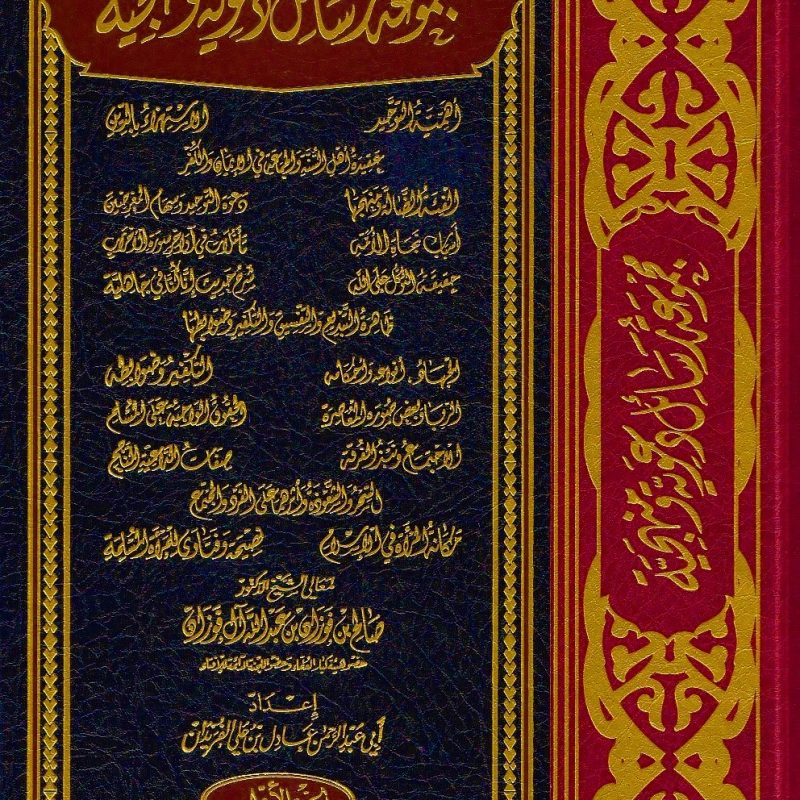 مجموعة رسائل دعوية ومنهجية
أهمية التوحيد الاستهزاء بالدين
عقيدة أهل السنة والجماعة في الإيمان والكفر
الفئة الضالة منهجها دعوة التوحيد وسهام المغرضين
أسباب نجاة الأمة تأملات في أواخر سورة الأحزاب
حقيقة التوكل على الله شرح حديث إنا كنا في جاهلية
ظاهرة التبديع والتفسيق والتكفير وضوابطها
الجهاد، أنواعه وأحكامه التكفير وضوابطه
الربا وبعض صوره المعاصرة الحقوق الواجبة على المسلم
الاجتماع ونبذ الفرقة صفات التاجر
السحر والشعوذة وأثرهما على الفرد والمجتمع
مكانة المرأة في الإسلام نصيحة وفتاوى للمرأة المسلمة
معالي الشيخ الدكتور
صالح بن فوزان بن عبد الله آل فوزان
عضو هيئة كبار العلماء وعضو اللجنة الدائمة للإفتاء
إعداد
أبي عبد الرحمن عادل بن علي الفريدان
مجموعة رسائل دعوية ومنهجية